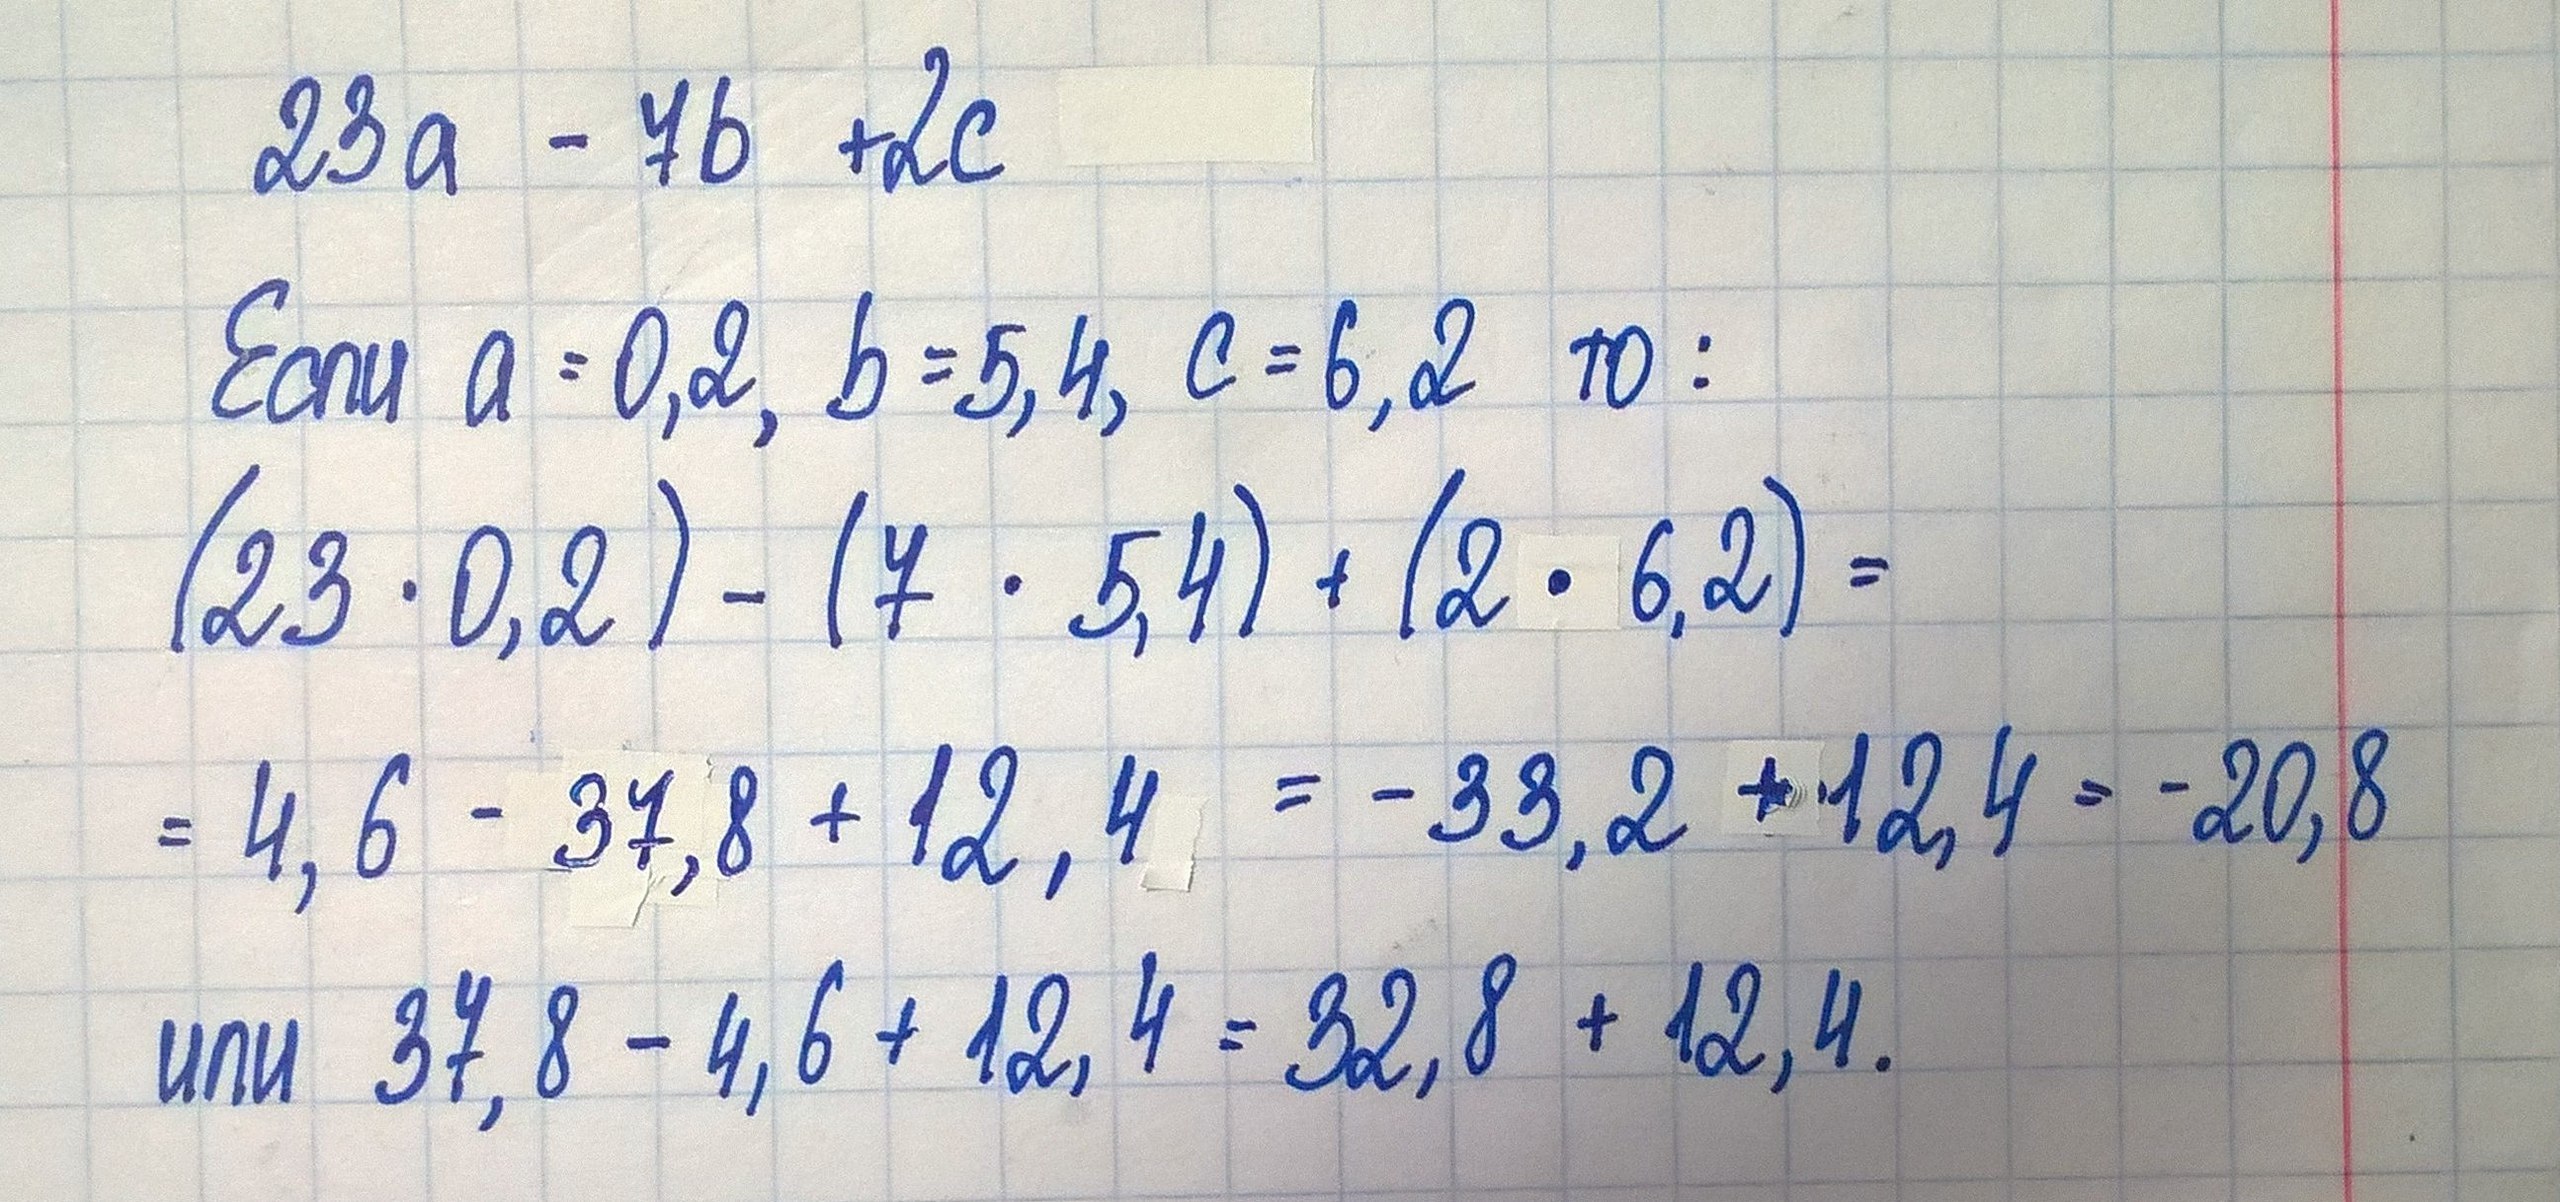 23a - 7b +2c
Если a = 0,2, b = 5,4, c = 6,2 то:
(23 · 0,2) - (7 · 5,4) + (2 · 6,2) =
= 4,6 - 37,8 + 12,4 = -33,2 + 12,4 = -20,8
или 37,8 - 4,6 + 12,4 = 32,8 + 12,4.